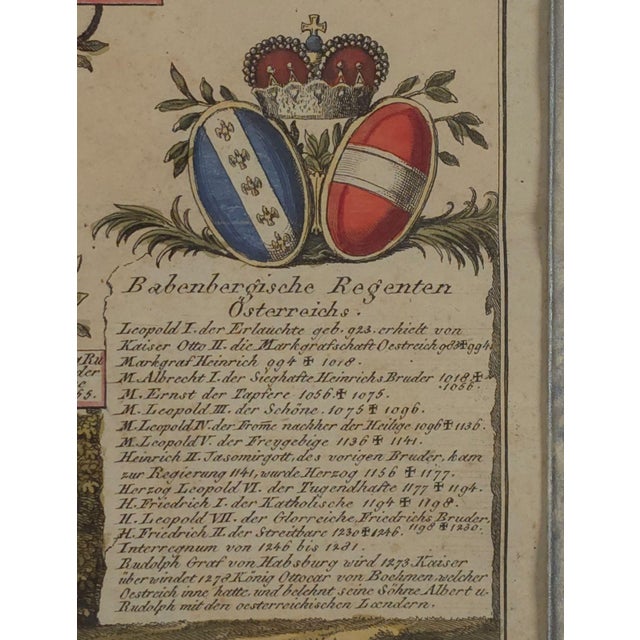 Babenbergische Regenten
Österreichs.
Leopold I. der Erlauchte geb. 923. erhielt von
Kaiser Otto II. die Markgrafschaft Oestreich 983 ✠ 994
Markgraf Heinrich 994 ✠ 1018.
M. Albrecht I. der Sieghafte Heinrichs Bruder 1018 ✠
1056.
M. Ernst der Tapfere 1056 ✠ 1075.
M. Leopold III. der Schöne. 1075 ✠ 1096.
M. Leopold IV. der Frome nachher der Heilige 1096 ✠ 1136.
M. Leopold V. der Freygebige 1136 ✠ 1141.
Heinrich II. Jasomirgott, des vorigen Bruder, kam
zur Regierung 1141, wurde Herzog 1156 ✠ 1177.
Herzog Leopold VI. der Tugendhafte 1177 ✠ 1194.
H. Friedrich I. der Katholische 1194 ✠ 1198.
H. Leopold VII. der Glorreiche, Friedrichs Bruder.
1198 ✠ 1230.
H. Friedrich II. der Streitbare 1230 ✠ 1246.
Interregnum von 1246 bis 1281.
Rudolph Graf von Habsburg wird 1273 Kaiser
überwindet 1278 König Ottocar von Boehmen, welcher
Oestreich inne hatte, und belehnt seine Söhne Albert u.
Rudolph mit den oesterreichischen Lændern.
Ru
der
55.